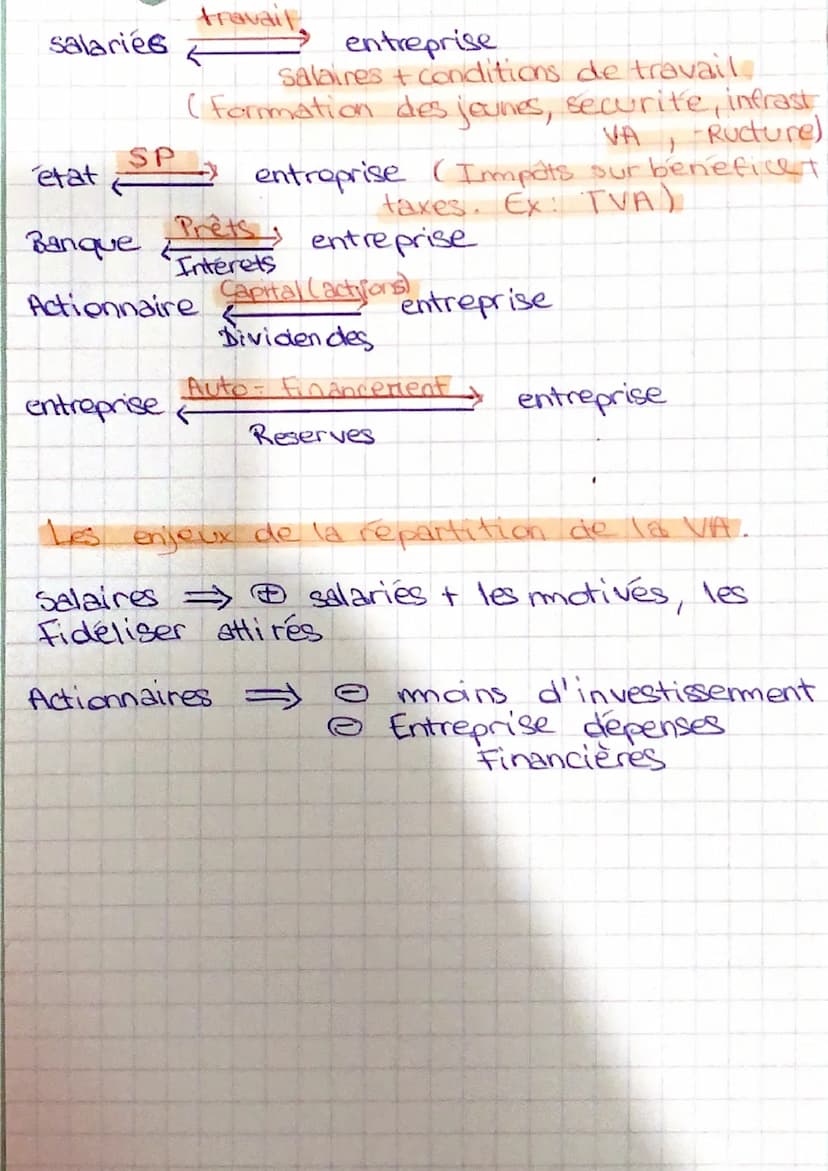 travail
salariés entreprise
salaires + conditions de travail
(Formation des jeunes, sécurité, infrast
VA , -Ructure)
SP
état entreprise (Immpôts sur bénéfice +
taxes. Ex: TVA)
Prêts
Banque entreprise
Intérets
Capital (actions)
Actionnaire entreprise
Dividendes
Auto-Financement
entreprise entreprise
Reserves
Les enjeux de la répartition de la VA.
Salaires ⇒ ⊕ salariés + les motivés, les
Fidéliser attirés
Actionnaires ⇒ ⊖ moins d'investissement
⊖ Entreprise dépenses
Financières